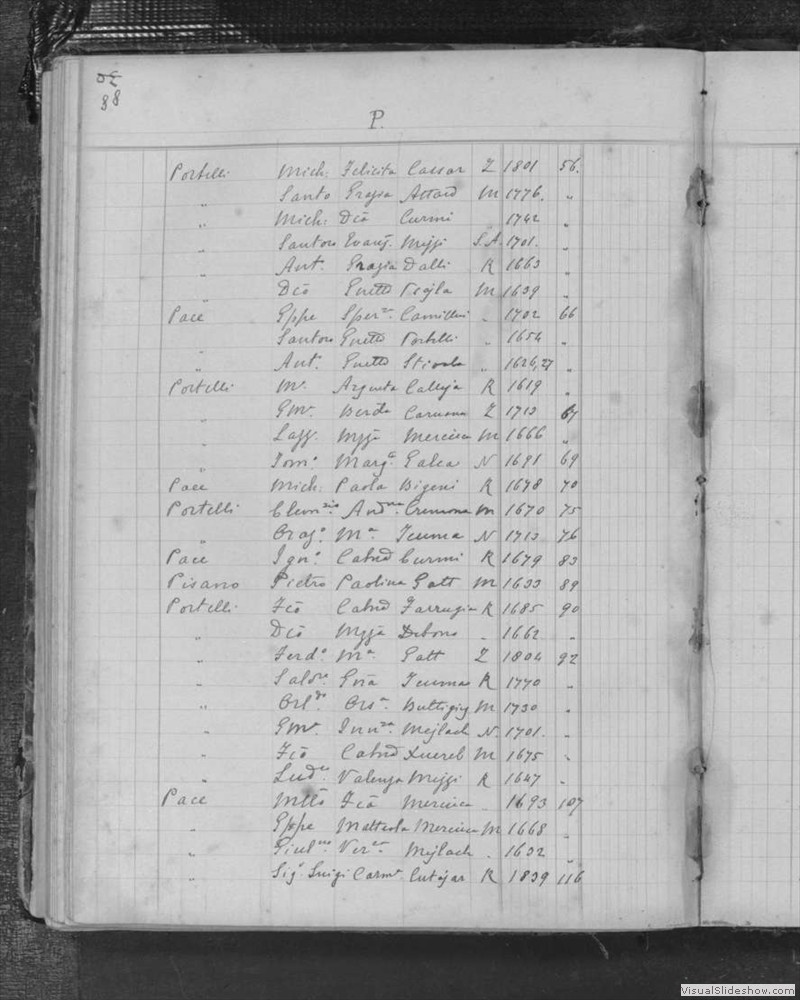 88
P.
Portelli Mich: Felicita Cassar Z 1801 56.
„ Santo Grazia Attard M 1776. „
„ Mich: Dcā Curmi „ 1742 „
„ Santoro Evang. Mizzi S.A. 1701. „
„ Ant. Grazia Dalli R 1663 „
„ Dcō Gnetta M 1639 „
Pace Gppe Sper.za Camilleri „ 1702 66
„ Santoro Gnetta Portelli „ 1654 „
„ Ant. Gnetta Stivala „ 1626,27 „
Portelli M. Argenta Calleja R 1619 „
„ Gm. Caruana Z 1713 67
„ Mercieca M 1666 „
„ Tom.o Marg.a Galea N 1691 69
Pace Mich: Paola Bigeni R 1678 70
Portelli And.na Cremona M 1670 75
„ M.a Teuma N 1713 76
Pace Ign.o Catnd Curmi R 1679 83
Pisano Pietro Paolina Gatt M 1633 89
Portelli Fcō Catnd Farrugia R 1685 90
„ Dcō Debono „ 1662 „
„ Ferd.o M.a Gatt Z 1804 92
„ Salv.re Gvā Teuma R 1770 „
„ Orl.do Ors.a Buttigieg M 1730 „
„ Gm. Inn.za Mejlach N. 1701. „
„ Fcō Catnd Xuereb M 1675 „
„ Lud.co Valenza Mizzi R 1647 „
Pace Mttō Fcā Mercieca „ 1693 107
„ Gppe Matteola Mercieca M 1668 „
„ Giul.no Ver.ca Mejlach „ 1632 „
„ Sig.r Luigi Carm. Cutajar R 1839 116
VisualSlideshow.com